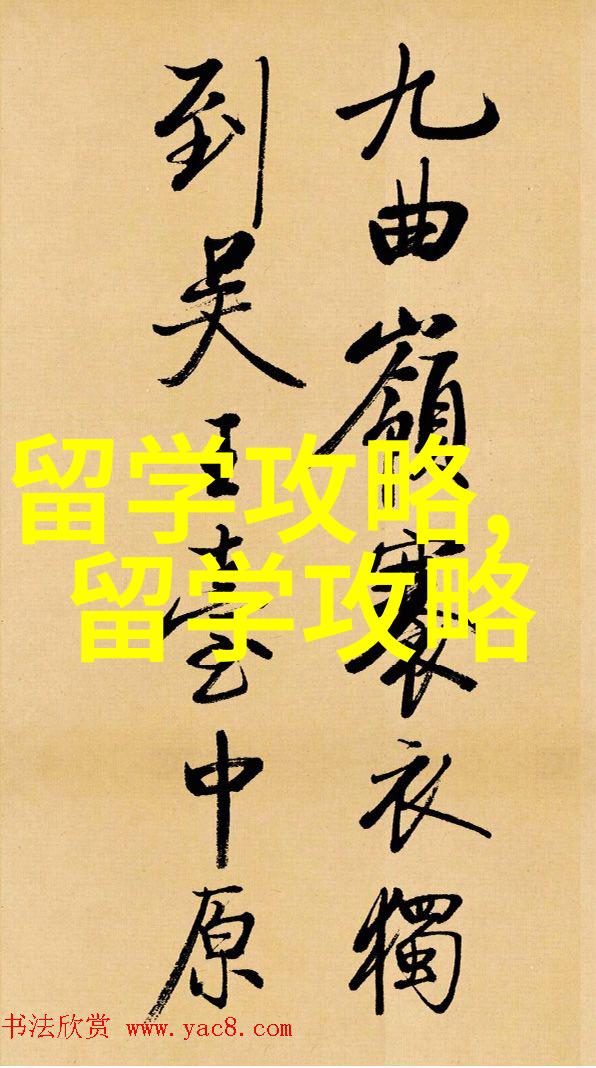 九曲嶺褰衣獨
到吳王臺中原
留学攻略,
留学攻略
书法欣赏 www.yac8.com